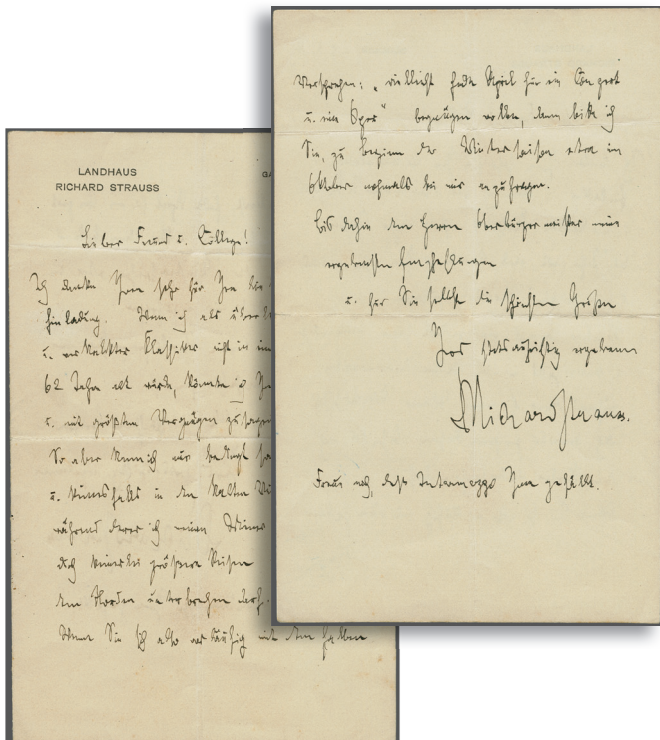 LANDHAUS
RICHARD STRAUSS
GA
Lieber Freund u. College!
Ich danke Ihnen sehr für Ihre
Einladung. Wenn ich als
u. verkalkter Klassiker nicht in
62 Jahre alt würde, könnte ich
u. mit größtem Vergnügen zusagen
So aber kann ich nur bedingt
u. keinesfalls in den kalten
während derer ich meinen Wiener
durch keinerlei größere Reisen
dem Norden unterbrechen darf.
Wenn Sie sich also vorläufig mit dem halben
Versprechen: „vielleicht Ende April für ein Conzert
u. eine Oper“ begnügen wollen, dann bitte ich
Sie, zu Beginn der Wintersaison etwa im
Oktober nochmals bei mir anzufragen.
Bis dahin dem Herrn Oberbürgermeister meine
ergebensten Empfehlungen
u. für Sie selbst die schönsten Grüße
Ihres stets aufrichtig ergebenen
DrRichardStrauss.
Freue mich, daß Intermezzo Ihnen gefällt.